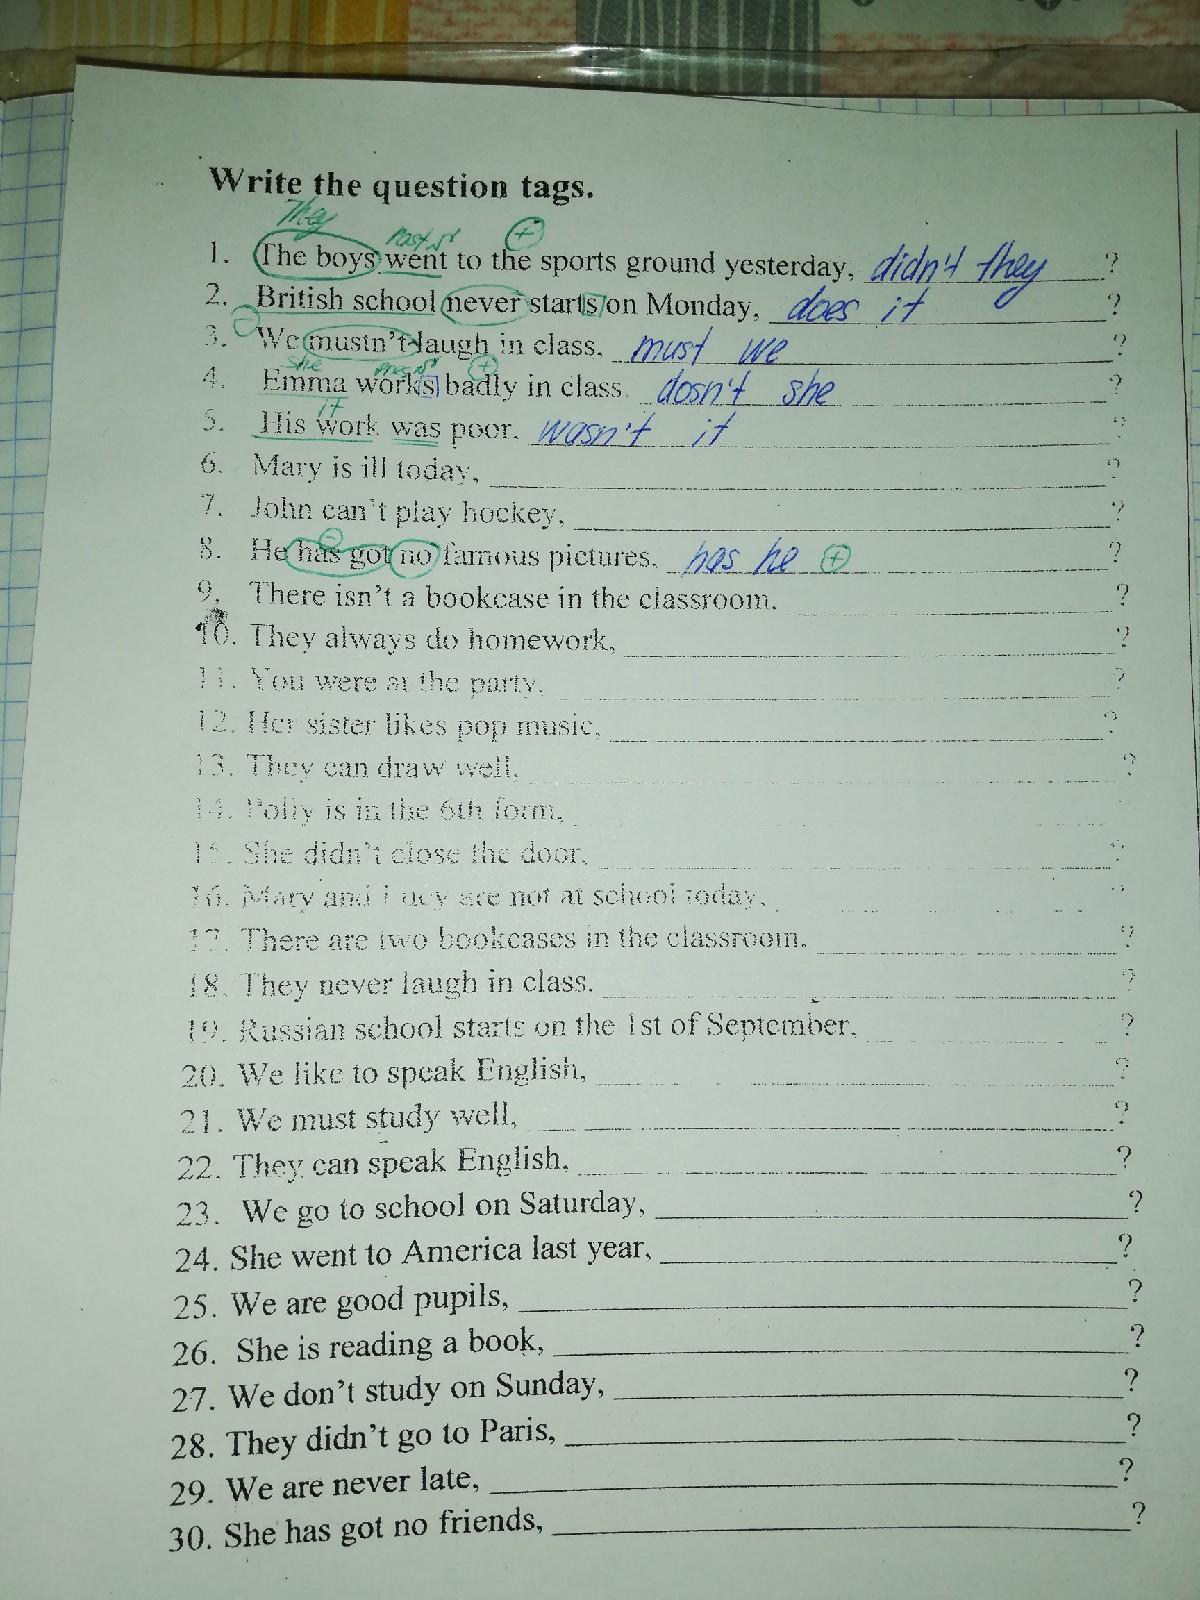 Write the question tags.
They
Past S
+
1. The boys went to the sports ground yesterday, didn't they ?
2. British school never starts on Monday, does it ?
3. We mustn't laugh in class, must we ?
she
+
4. Emma works badly in class. dosn't she ?
it
5. His work was poor. wasn't it ?
6. Mary is ill today, ?
7. John can't play hockey, ?
8. He has got no famous pictures. has he + ?
9. There isn't a bookcase in the classroom. ?
10. They always do homework, ?
11. You were at the party, ?
12. Her sister likes pop music, ?
13. They can draw well. ?
14. Polly is in the 6th form,
15. She didn't close the door, ?
16. Mary and Lucy are not at school today, ?
17. There are two bookcases in the classroom. ?
18. They never laugh in class. ?
19. Russian school starts on the 1st of September, ?
20. We like to speak English, ?
21. We must study well, ?
22. They can speak English, ?
23. We go to school on Saturday, ?
24. She went to America last year, ?
25. We are good pupils, ?
26. She is reading a book, ?
27. We don't study on Sunday, ?
28. They didn't go to Paris, ?
29. We are never late, ?
30. She has got no friends, ?